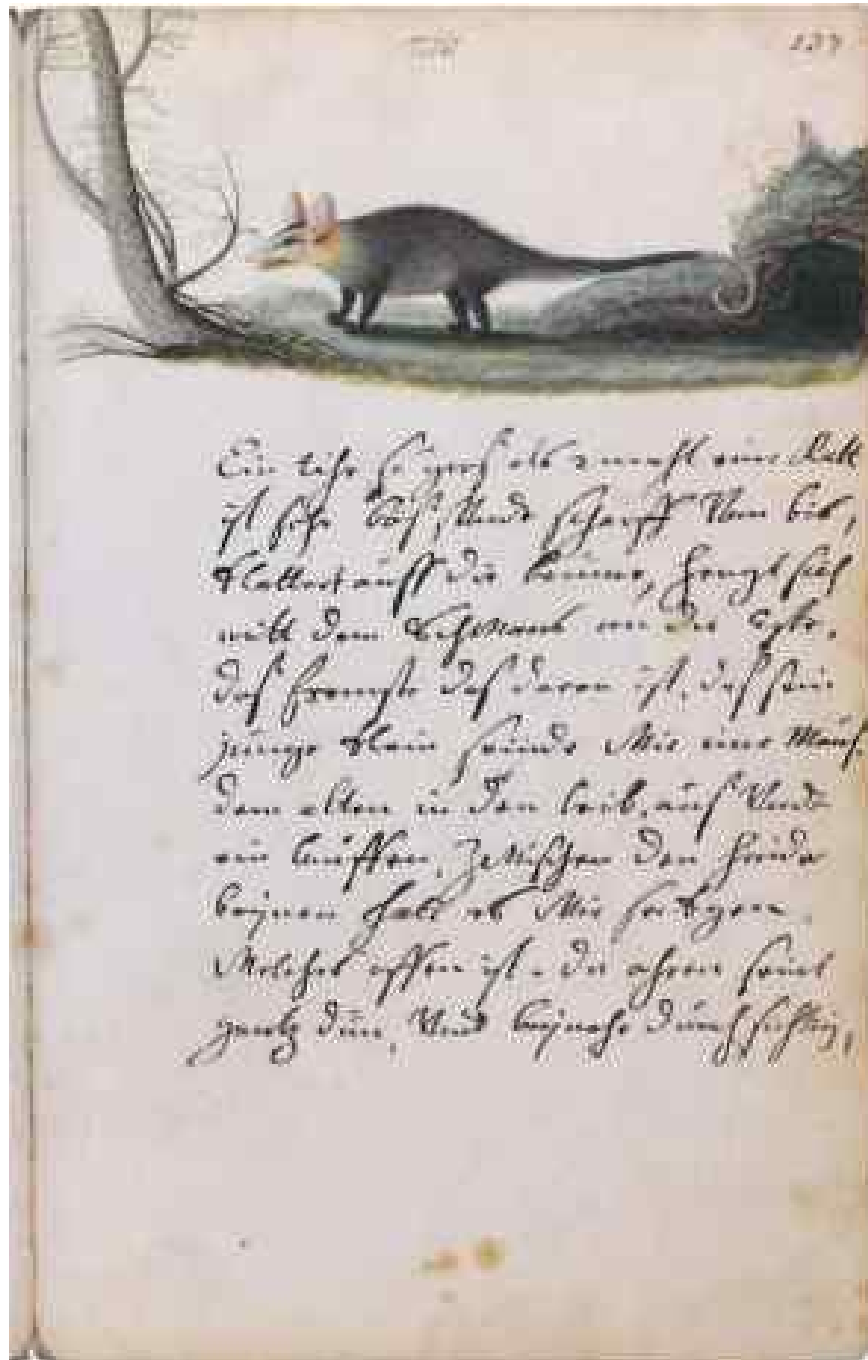 137
Ein tihr so gros als 2 mahl eine Katt
ist sehr bös, Unde scharff Von bis,
klattert auff die beume, hengt sich
mitt dem schwans an die
das fremste das daran ist, das sein
junge klein seinde Wie eine Maus
dem alten in den leib, aus Unde
ein lauffen, Zwischen den hinder
beynen hatt es Wie
Welches offen ist. die ohren seint
gantz dün, Und beynahe durchsichtig,